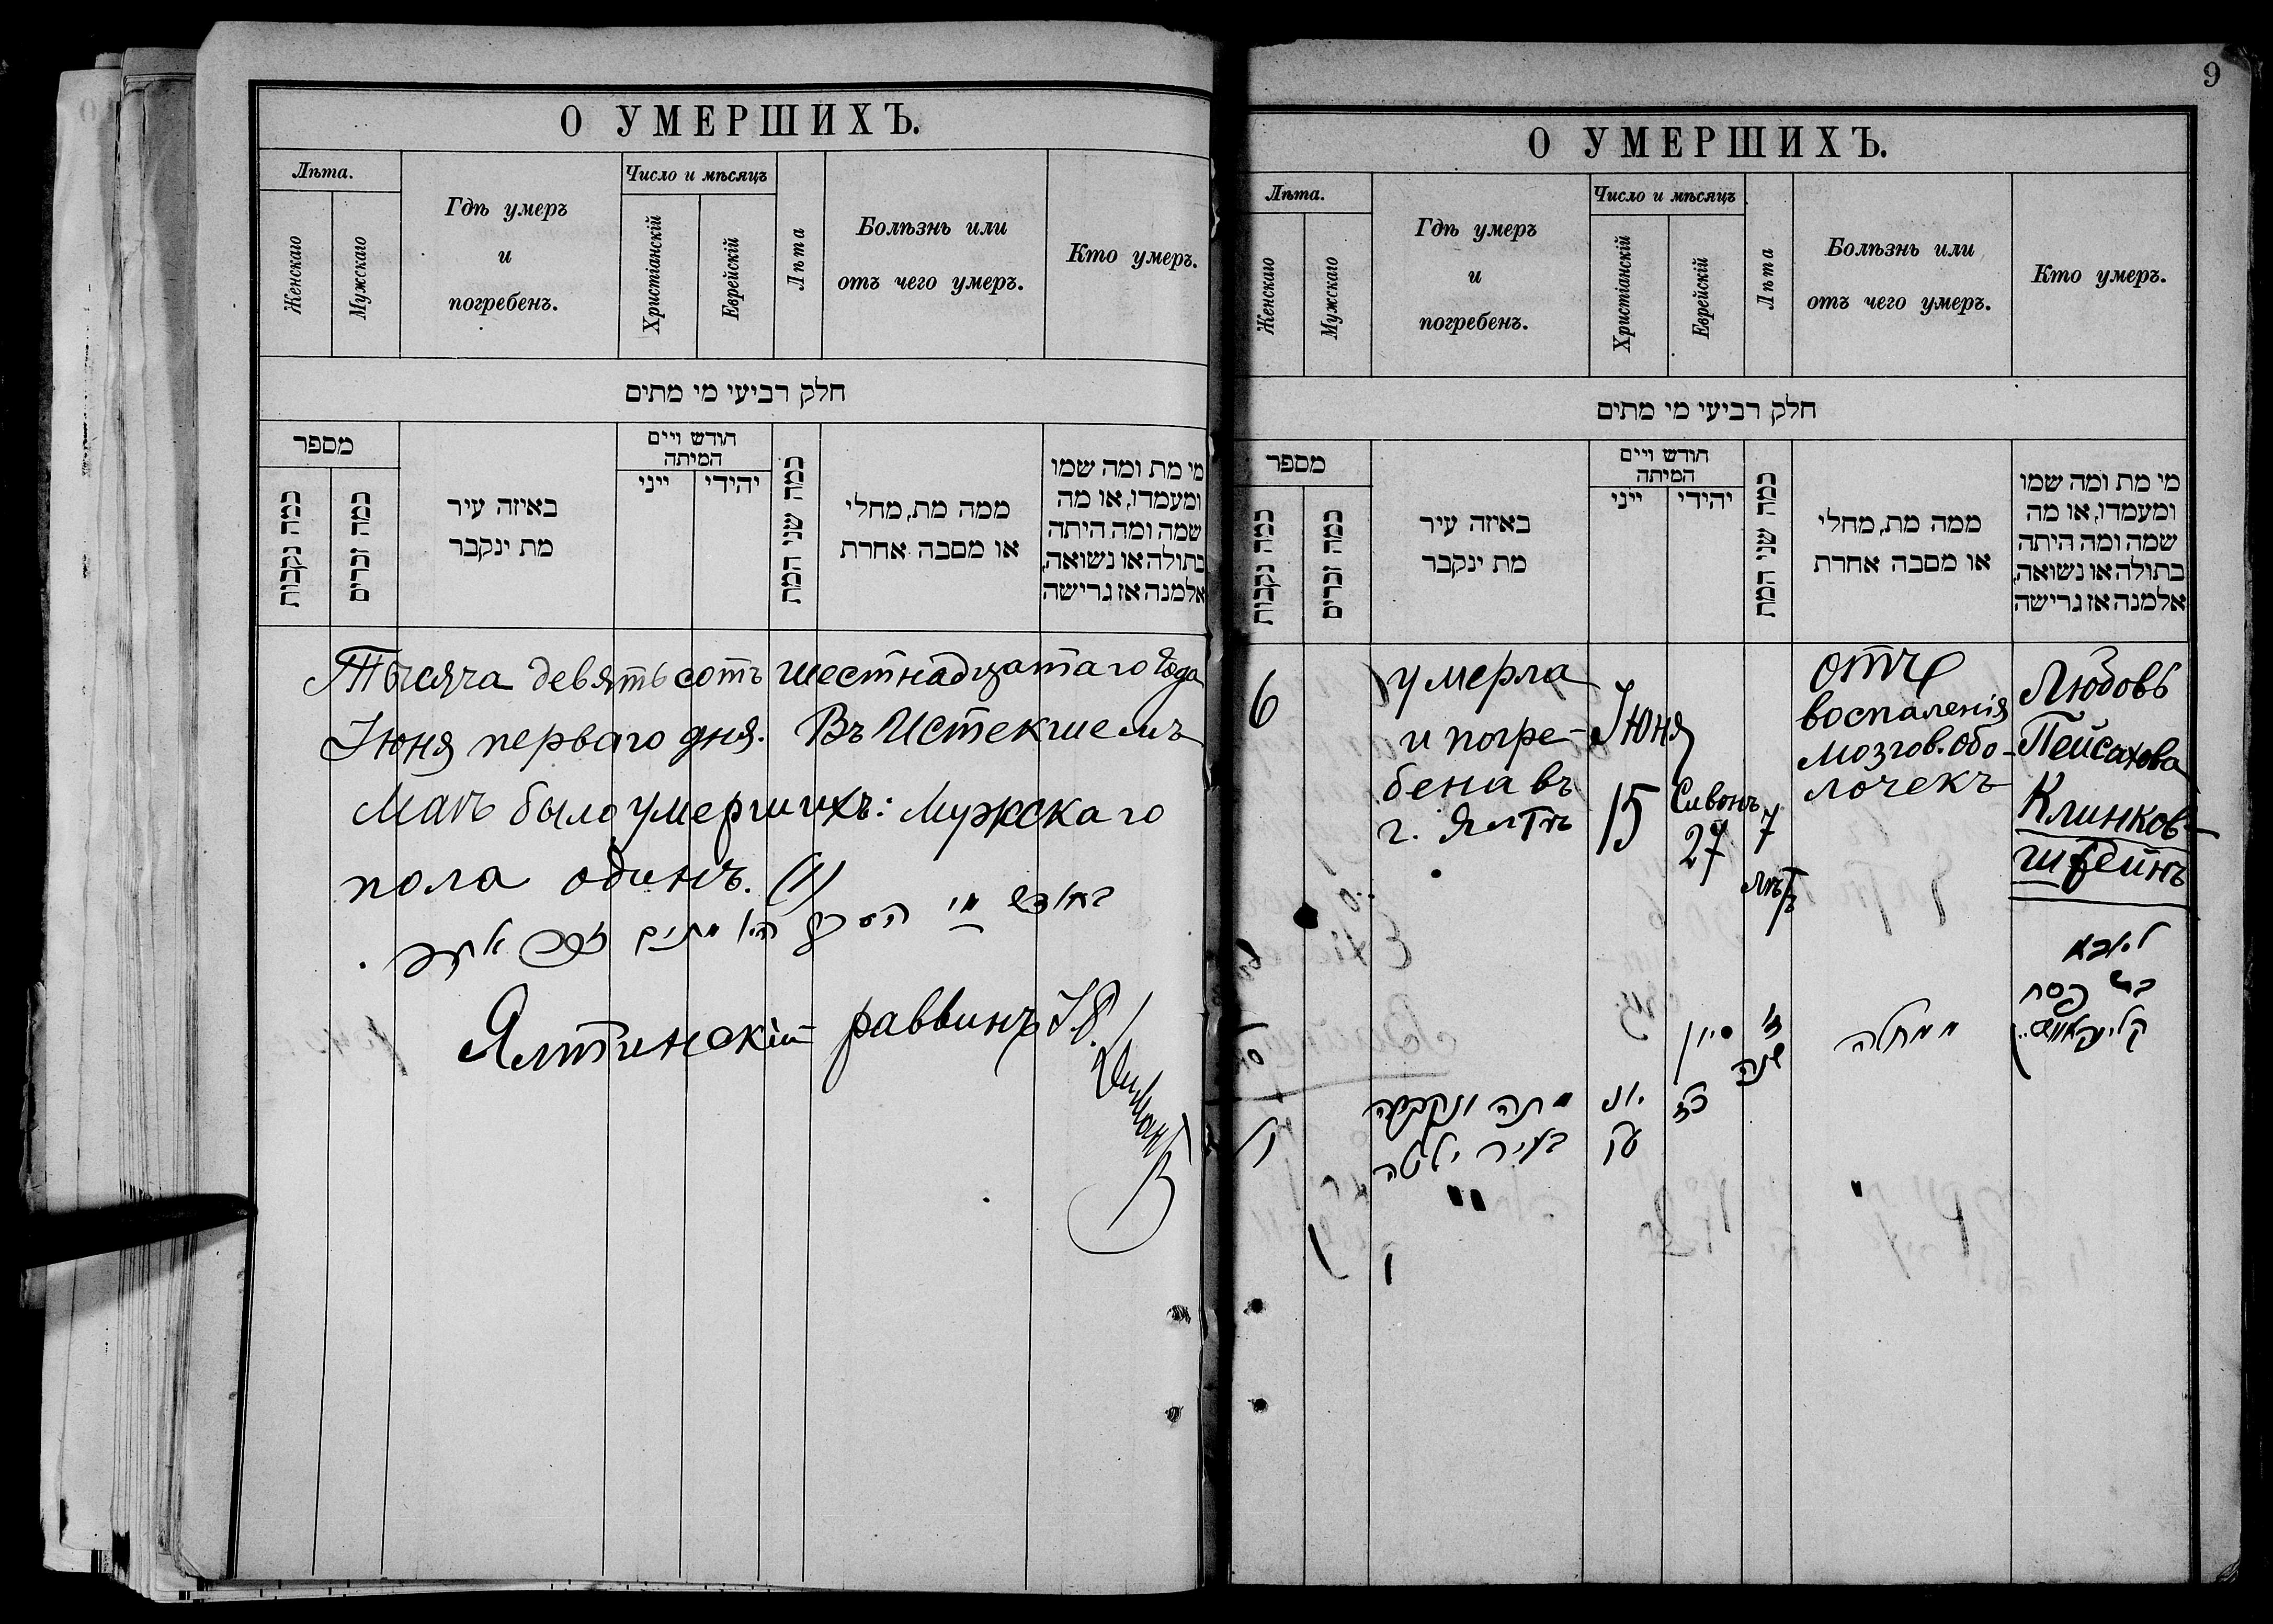 О УМЕРШИХЪ.
Лѣта.
Женскаго
Мужскаго
Гдѣ умеръ
и
погребенъ.
Число и мѣсяцъ
Христіанскій
Еврейскій
Лѣта
Болѣзнь или
отъ чего умеръ.
Кто умеръ.
חלק רביעי מי מתים
מספר
כמה נקבות
כמה זכרים
באיזה עיר
מת ינקבר
חודש ויים
המיתה
ייני
יהודי
כמה שני המת
ממה מת, מחלי
או מסבה אחרת
מי מת ומה שמו
ומעמדו, או מה
שמה ומה היתה
בתולה או נשואה,
אלמנה אז גרישה
Тысяча девятьсотъ шестнадцатаго года
Іюня перваго дня. Въ Истекшемъ
Маѣ было умершихъ: Мужскаго
пола одинъ. (1)
Ялтинскій раввинъ
9
О УМЕРШИХЪ.
Лѣта.
Женскаго
Мужскаго
Гдѣ умеръ
и
погребенъ.
Число и мѣсяцъ
Христіанскій
Еврейскій
Лѣта
Болѣзнь или
отъ чего умеръ.
Кто умеръ.
חלק רביעי מי מתים
מספר
כמה נקבות
כמה זכרים
באיזה עיר
מת ינקבר
חודש ויים
המיתה
ייני
יהודי
כמה שני המת
ממה מת, מחלי
או מסבה אחרת
מי מת ומה שמו
ומעמדו, או מה
שמה ומה היתה
בתולה או נשואה,
אלמנה אז גרישה
6
умерла
и погре-
бена въ
г. Ялтѣ
Іюня
15
Сивонъ
27
7
лѣтъ
отъ
воспаленія
мозгов. обо-
лочекъ
Любовь
Пейсахова
Клинков-
штейнъ
ליובא
בת פסח
ממחלה
ז'
שנה
סיון
כז
יוני
טו
מתה ונקברה
בעיר ילטה
ו